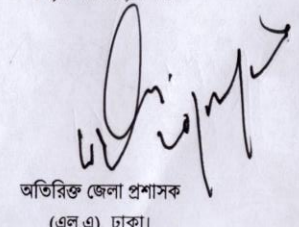 অতিরিক্ত জেলা প্রশাসক
(এল এ) ঢাকা।